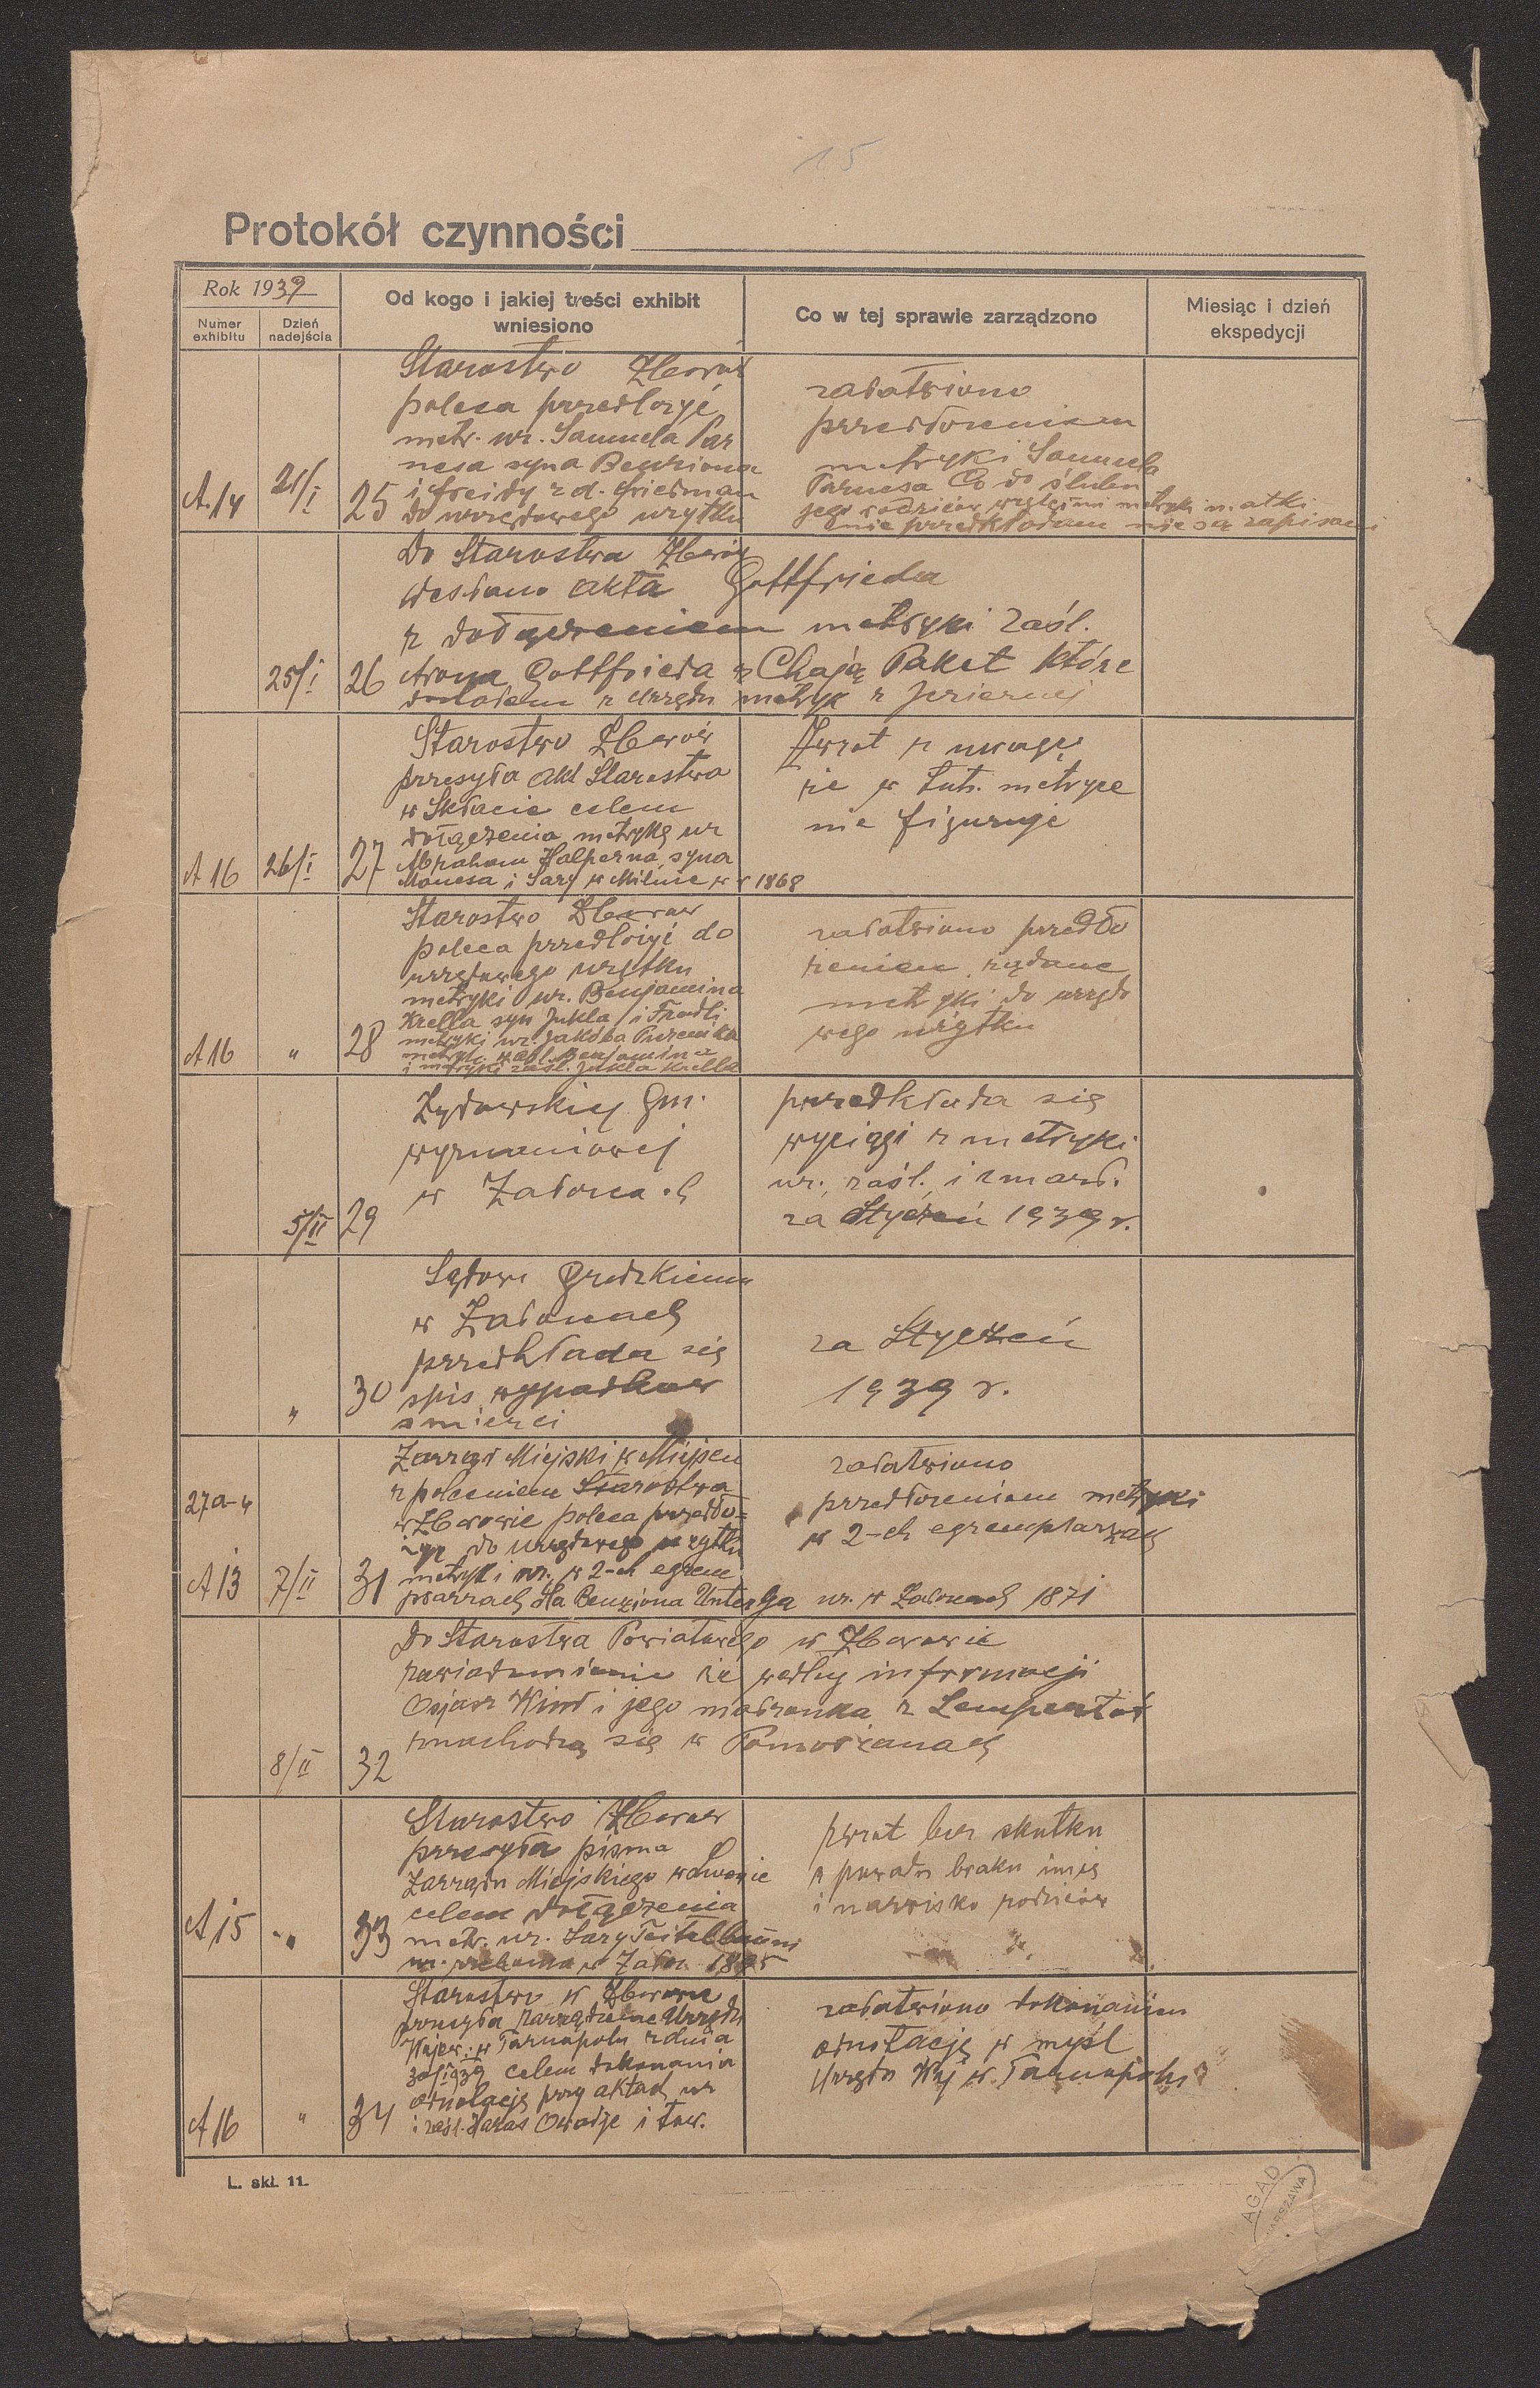 15
Protokół czynności
Rok 1939
Numer exhibitu
Dzień nadejścia
Od kogo i jakiej treści exhibit wniesiono
Co w tej sprawie zarządzono
Miesiąc i dzień ekspedycji
A.14 21/I 25
Starostwo Zborów
poleca przedłożyć
metr. ur. Samuela Par
nesa syna Benziona
i Freidy z d. Friedman
do urzędowego użytku
załatwiono
przedłożeniem
metryki Samuela
Parnesa Co do ślubu
jego rodziców względni metryki matki
nie przedkładam nie są zapisani
25/I 26
Do Starostwa Zborów
wesłano akta Gottfrieda
z dołączeniem metryki zaśl.
Arona Gottfrieda z Chają Paket które
z Urzędu metryk z Jeziernej
A 16 26/I 27
Starostwo Zborów
przesyła akt Starostwa
w Skłacie celem
dołączenia metrykę ur
Abrahama Halperna, syna
Monesa i Sary w Milnie w r 1868
Zwrot z uwagę
że w tut. metryce
nie figuruje
A 16 " 28
Starostwo Zborow
poleca przedłożyć do
urzędowego użytku
metryki ur. Benjamina
Krella syn Jukla i Fradli
metryki ur. Jakóba
metryk. zaśl. Benjamina
i metryki zaśl. Jukla Krella
załatwiono przedło
żeniem żądane
metryki do urzędo
wego użytku
5/II 29
Żydowskiej Gm.
wyznaniowej
w Załoźcach
przedkłada się
wyciągi z metryki
ur., zaśl., i zmarł.
za Styczeń 1939 r.
" 30
Sądowi Grodzkiemu
w Załoźcach
przedkłada się
spis wypadkow
śmierci
za Styczeń
1939 r.
27a-4
A 13 7/II 31
Zarząd Miejski w Miejscu
z poleceniem Starostwa
w Zborowie poleca przedło-
żyć do urzędowego użytku
metryki ur. w 2-ch egzem
plarzach dla Benziona Unterga ur. w Załoźcach 1871
załatwiono
przedłożeniem metryki
w 2-ch egzemplarzach
8/II 32
Do Starostwa Powiatowego w Zborowie
zawiadomienie że według informacji
Osjasz Wind i jego małżonka z Lempertów
znachodzą się w Pomorzanach
A 15 " 33
Starostwo Zborow
przesyła pisma
Zarządu Miejskiego w Lwowie
celem dołączenia
metr. ur. Sary Teitelbaum
ur. w Załoz 1895
zwrot bez skutku
z powodu braku imię
i nazwisko rodziców
A 16 " 34
Starostwo w Zborowie
przesyła zarządzenie Urzędu
Wojew. w Tarnopolu z dnia
30/I 1939 celem dokonania
adnotację przy aktach ur
i zaśl. Haras Owadje i tow.
załatwiono dokonaniem
adnotację w myśl
Urzędu Woj w. Tarnopolu
L. skł. 11.
AGAD
WARSZAWA